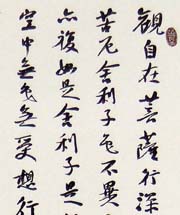 觀自在菩薩行深
苦厄舍利子色不異
亦復如是舍利子是
空中無色無受想行